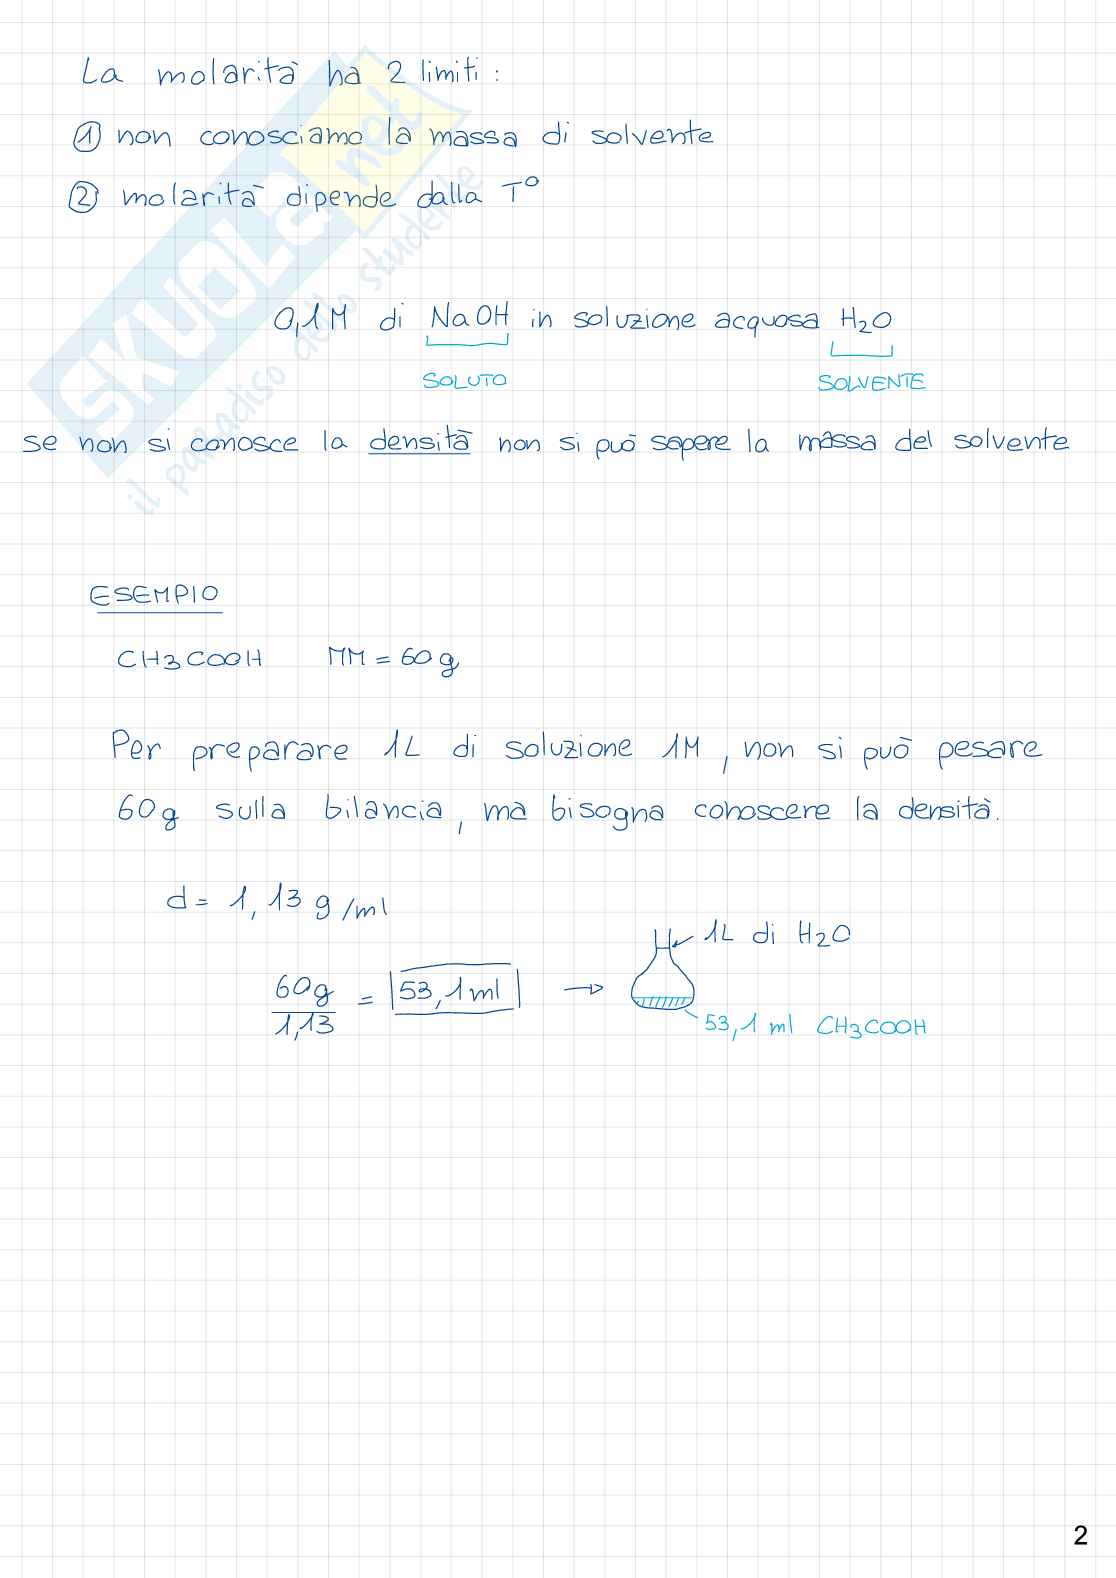 La molarità ha 2 limiti:
① non conosciamo la massa di solvente
② molarità dipende dalla T°
0,1M di NaOH in soluzione acquosa H2O
SOLUTO SOLVENTE
se non si conosce la densità non si può sapere la massa del solvente
ESEMPIO
CH3COOH MM = 60g
Per preparare 1L di soluzione 1M, non si può pesare
60g sulla bilancia, ma bisogna conoscere la densità.
d = 1,13 g/ml
1L di H2O
60g/1,13 = 53,1 ml →
53,1 ml CH3COOH
SKUOLA.net
il paradiso dello studente
2